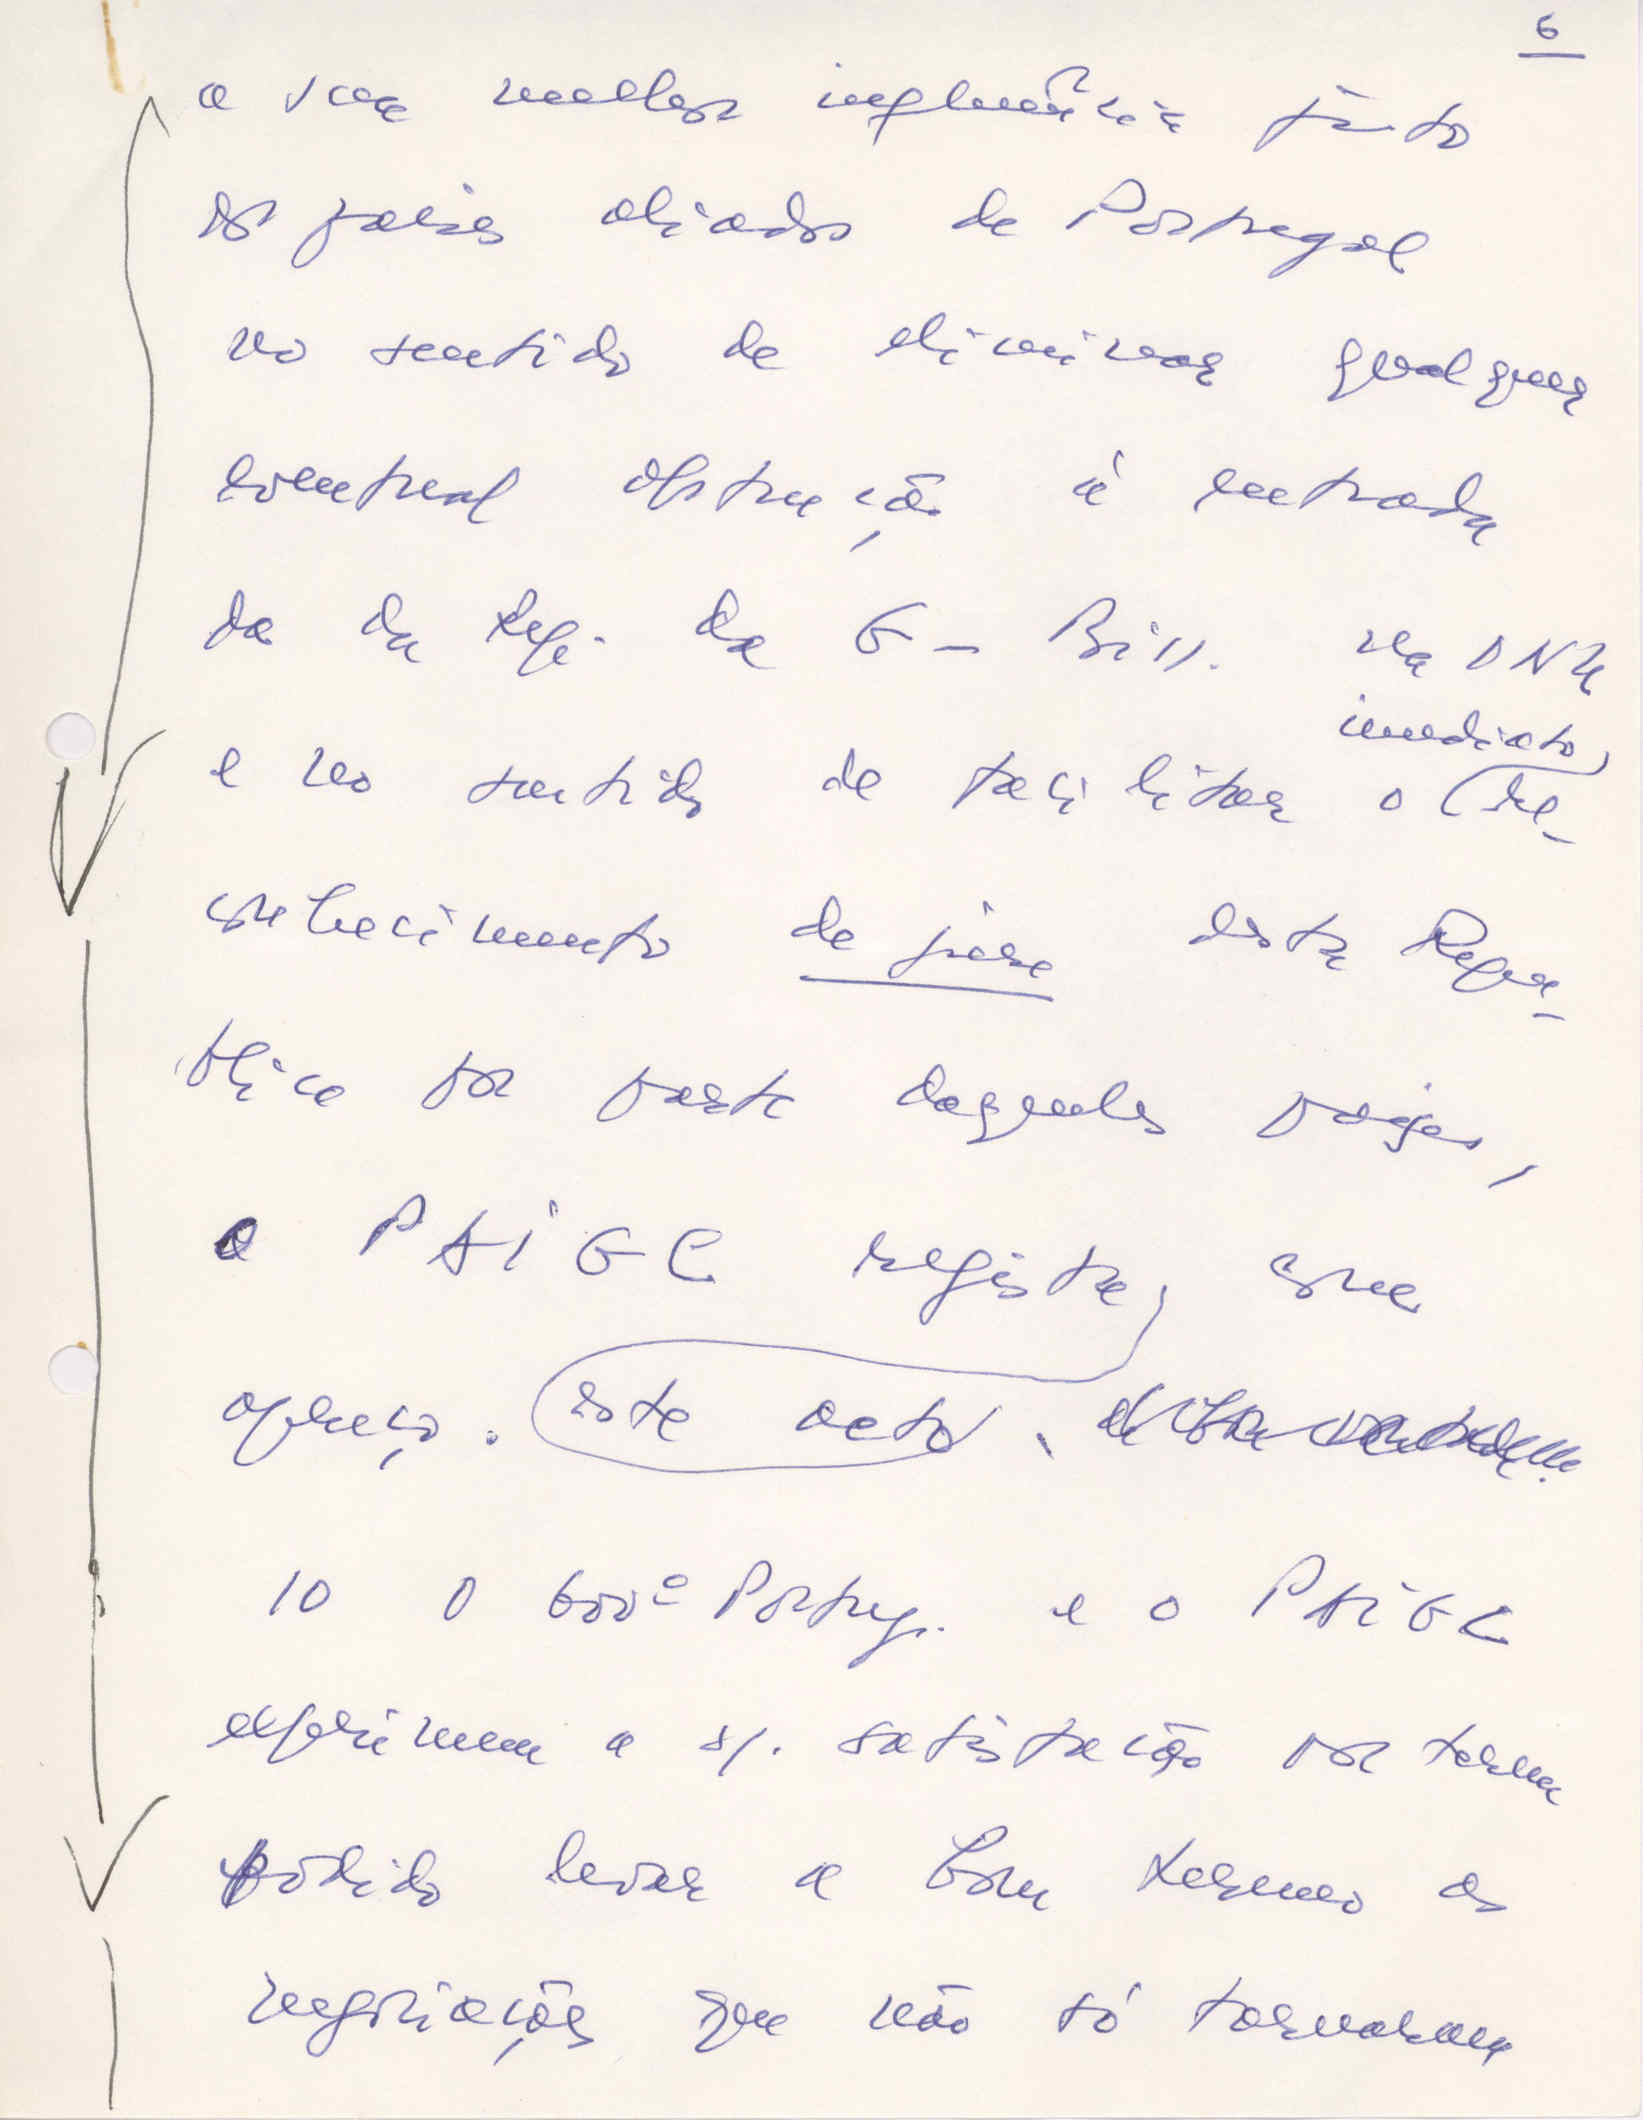 6
a sua melhor influência junto
dos países aliados de Portugal
no sentido de eliminar qualquer
eventual obstrução à entrada
da da Rep. da G – Biss. na ONU
imediato
e no sentido de facilitar o re-
conhecimento de jure desta Repú-
blica por parte daqueles países,
o PAIGC regista, com
apreço. este acto,
10 O Govº Portug. e o PAIGC
exprimem a s/. satisfação por terem
podido levar a bom termo as
negociações que não só tornaram